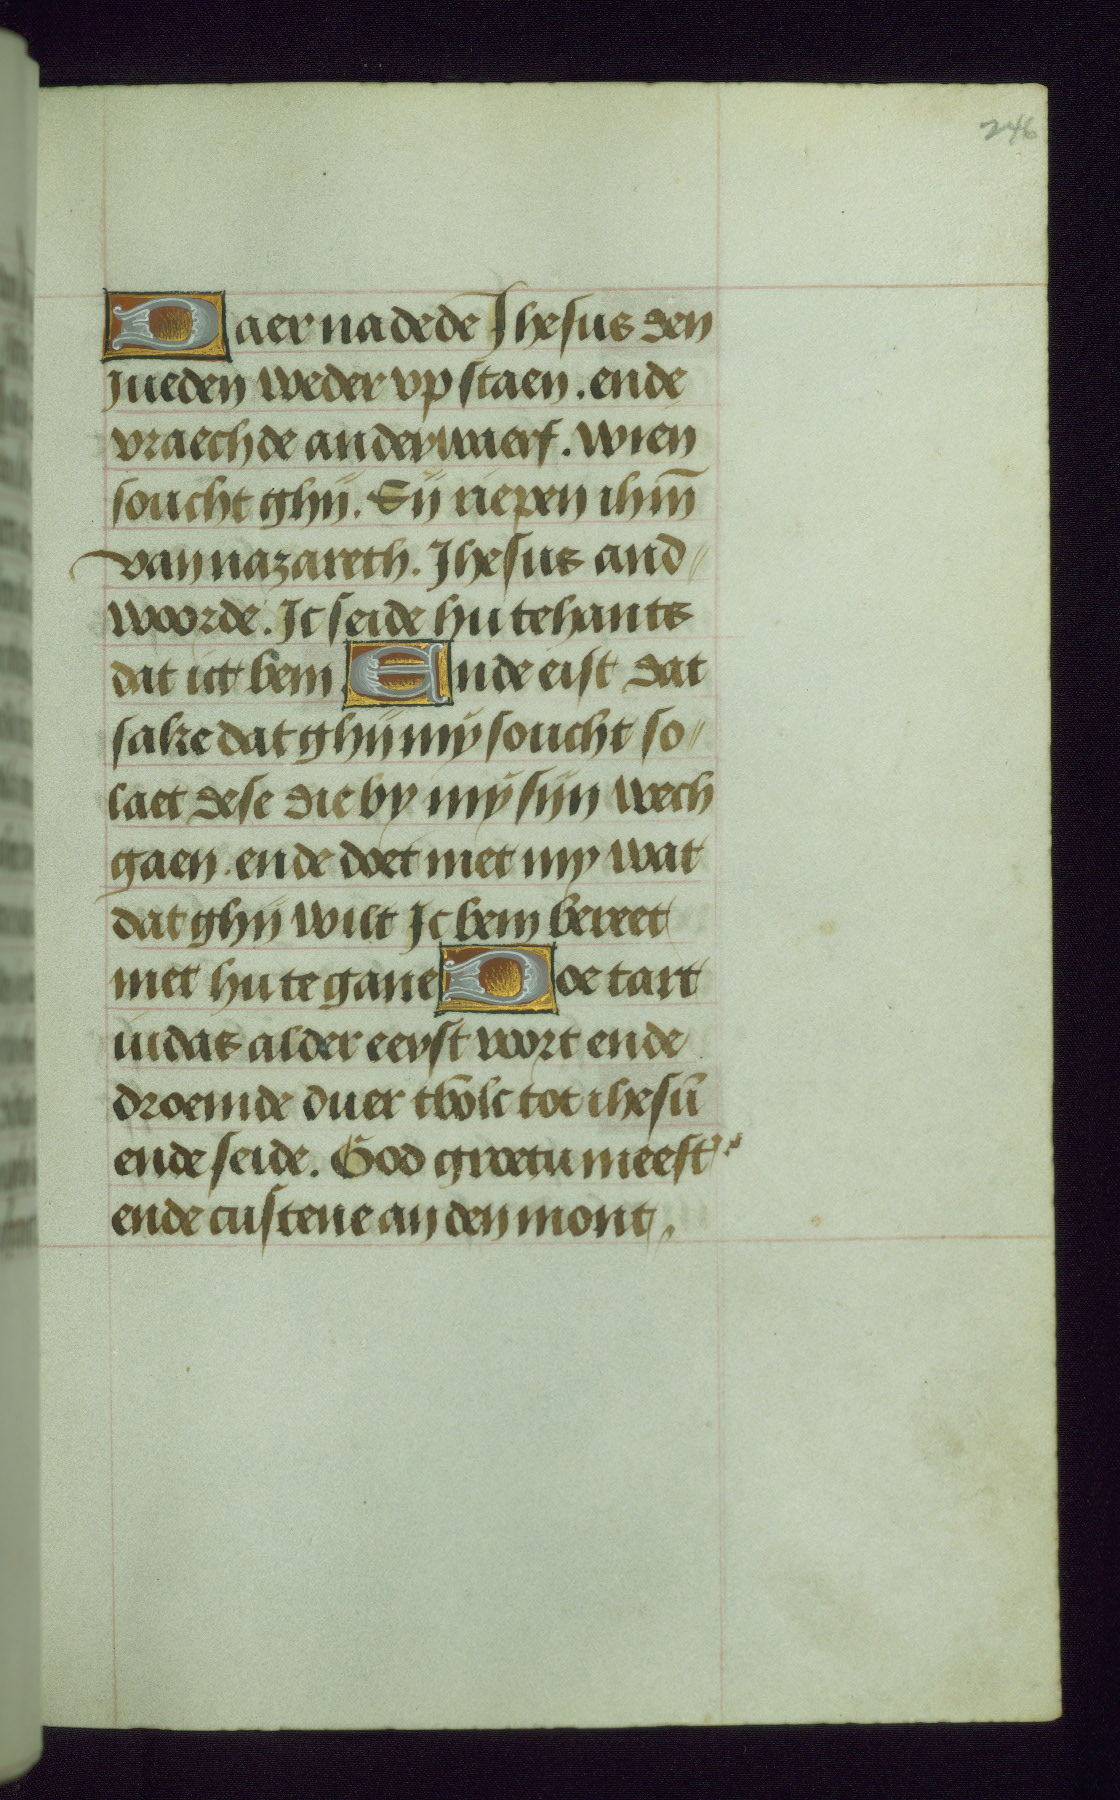 246
Daer na dede Jhesus den
jueden weder vp staen. ende
vraechde anderwaerf. Wien
soucht ghij. Sij riepen ihm̄
van nazareth. Jhesus and〃
woorde. Jc seide hu tehants
dat ict bem Ende eist dat
sake dat ghij mÿ soucht so〃
laet dese die by mÿ sijn wech
gaen. ende doet met my wat
dat ghij wilt Jc bem bereet
met hu te gane Doe tart
iudas alder eerst voort ende
droemde duer tvolc tot ihesū
ende seide. God groetu meestʼ
ende custene an den mont,